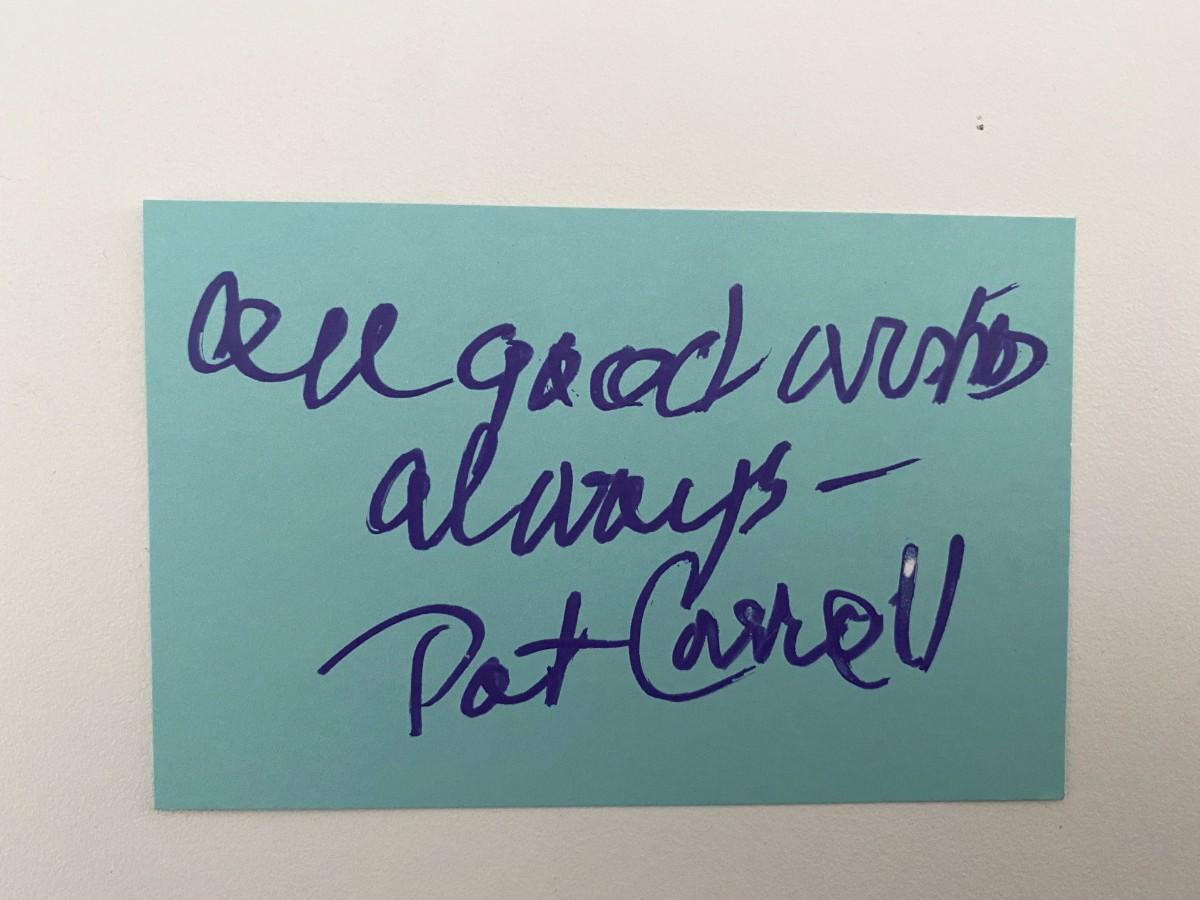 All good wishes
always —
Pat Carroll